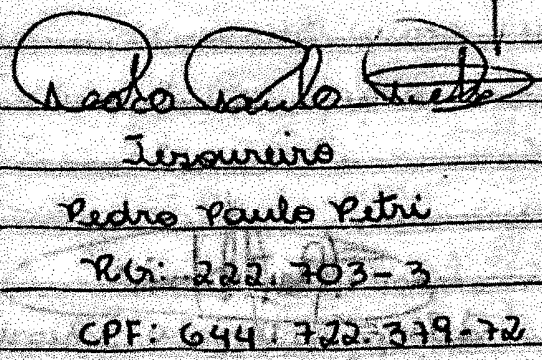 Pedro Paulo Petri
Tesoureiro
Pedro Paulo Petri
RG: 222.703-3
CPF: 644.722.379-72